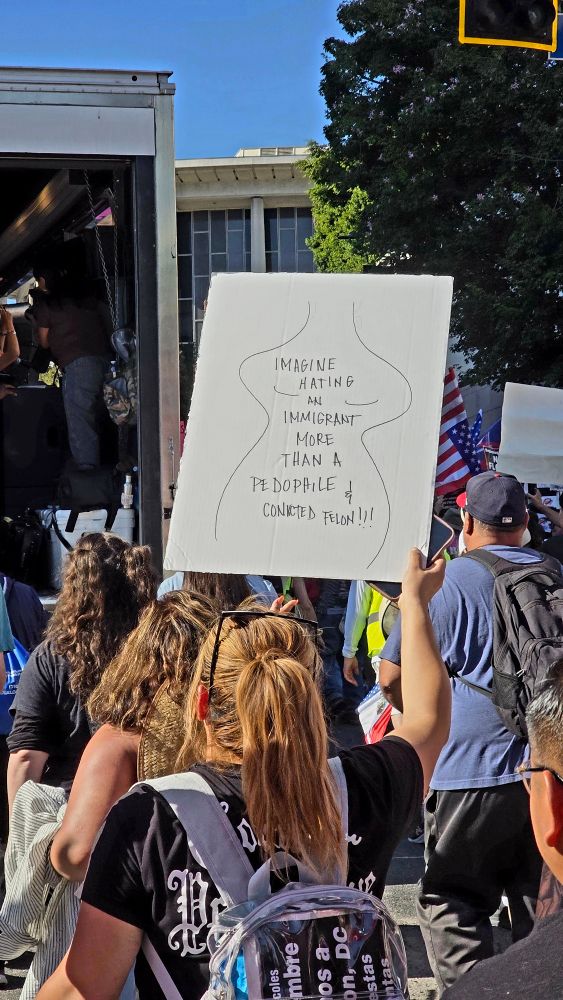 IMAGINE
HATING
AN
IMMIGRANT
MORE
THAN A
PEDOPHILE &
CONVICTED FELON!!!
coles
mbre
os a
on, DC
stas
ntas